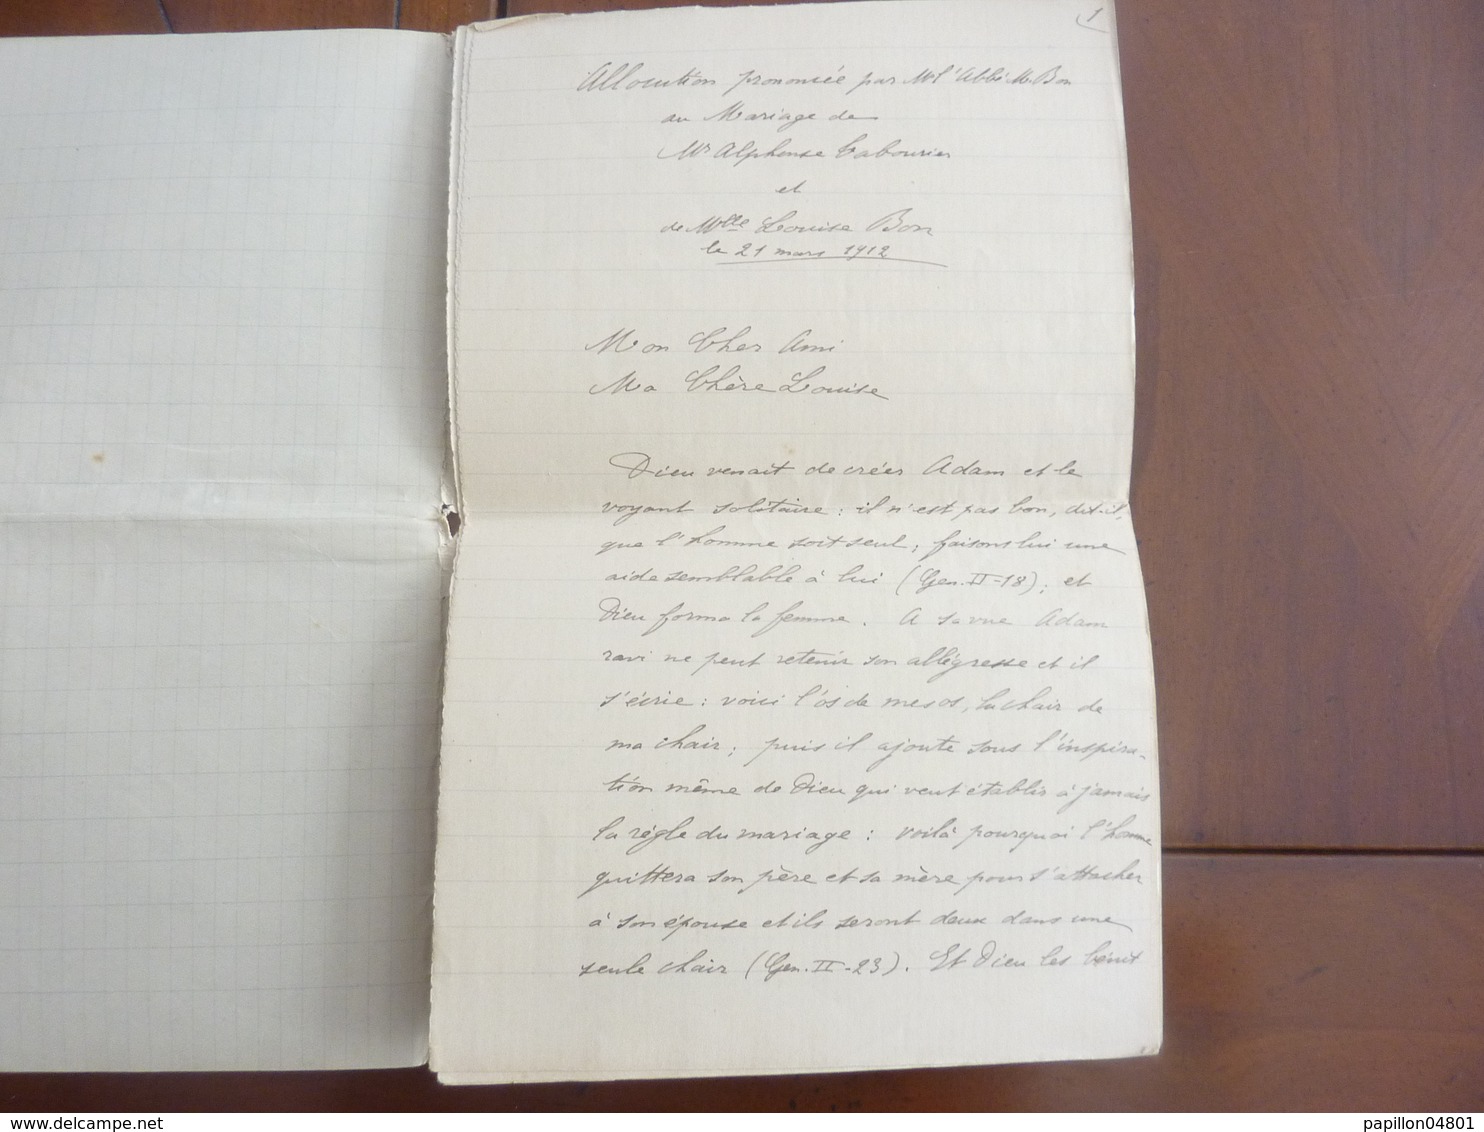 1
Allocution prononcée par Mr l'Abbé M. Bon
au Mariage de
Mr Alphonse Cabourier
et
de Mlle Louise Bon
le 21 mars 1912
Mon Cher Ami
Ma Chère Louise
Dieu venait de créer Adam et le
voyant solitaire : il n'est pas bon, dit-il,
que l'homme soit seul, faisons lui une
aide semblable à lui (Gen. II-18) ; et
Dieu forma la femme. A sa vue Adam
ravi ne peut retenir son allégresse et il
s'écrie : voici l'os de mes os, la chair de
ma chair ; puis il ajoute sous l'inspira-
tion même de Dieu qui veut établir à jamais
la règle du mariage : voilà pourquoi l'homme
quittera son père et sa mère pour s'attacher
à son épouse et ils seront deux dans une
seule chair (Gen. II-23). Et Dieu les bénit
delcampe.net
papillon04801